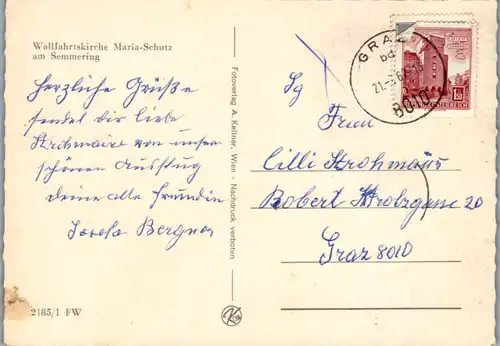 Wallfahrtskirche Maria-Schutz
am Semmering
Herzliche Grüße
sendet dir liebe
von unser
schönen Ausflug
deine alte Freundin
Josefa Bergner
2185/1 FW
Fotoverlag A. Kellner, Wien - Nachdruck verboten
GRAZ
8010
ÖSTERREICH
Sg
Frau
Cilli Strohmaier
Robert Stolzgasse 20
Graz 8010